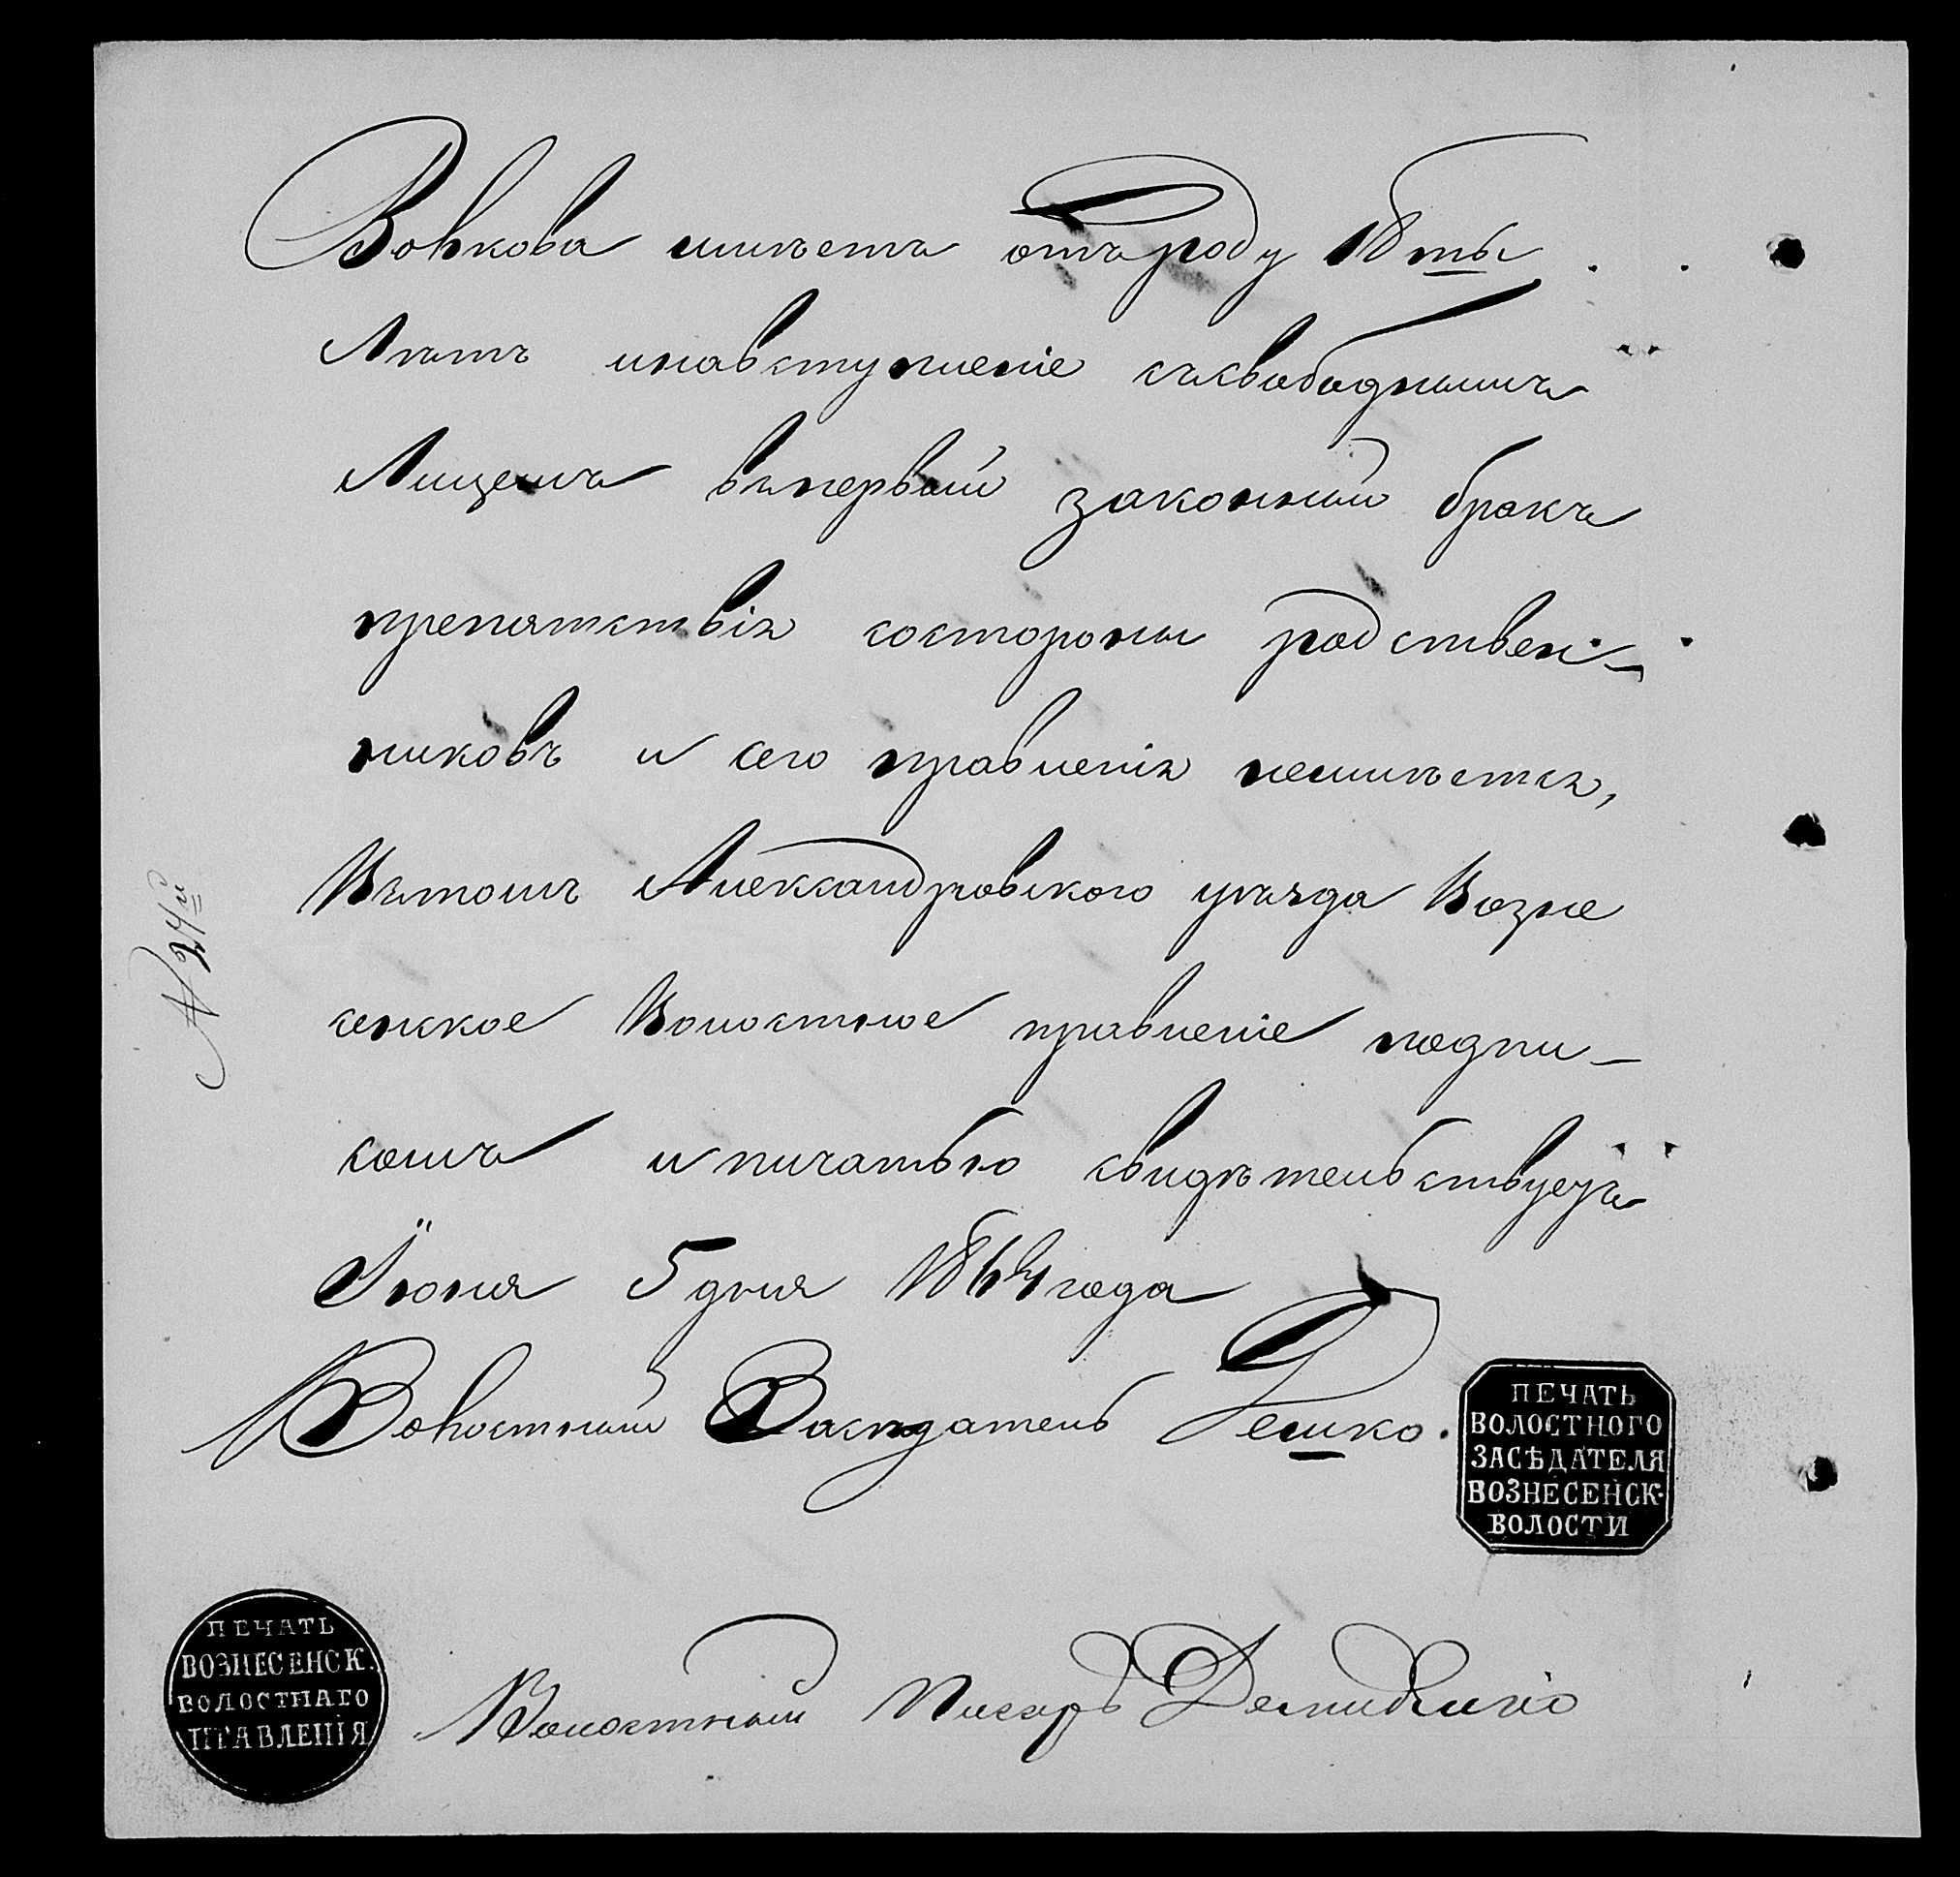 Волкова имѣетъ отъ роду 18ть
Лѣтъ инавступленіе съсвободнымъ
Лицемъ въпервый законный бракъ
препятствія состороны родствен-
никовъ и сего правленія неимѣется,
Вътомъ Александровского уѣзда Возне
сенское Волостное правленіе подпи-
сомъ и пичатью свидѣтельствуеть
Іюня 5 дня 1864 года
Волостный Засѣдатель
ПЕЧАТЬ
ВОЛОСТНОГО
ЗАСѢДАТЕЛЯ
ВОЗНЕСЕНСК.
ВОЛОСТИ
ПЕЧАТЬ
ВОЗНЕСЕНСК.
ВОЛОСТНАГО
ПРАВЛЕНІЯ
Волостный Писарь
№ 24й